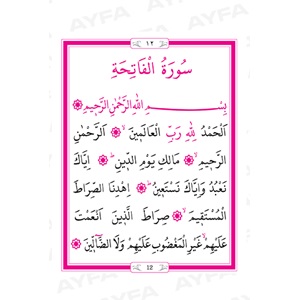 AYFA AYFA AYFA
١٢
سُورَةُ الْفَاتِحَةِ
بِسْمِ اللهِ الرَّحْمٰنِ الرَّحٖيمِ
اَلْحَمْدُ لِلّٰهِ رَبِّ الْعَالَمٖينَۙ اَلرَّحْمٰنِ
الرَّحٖيمِۙ مَالِكِ يَوْمِ الدّٖينِۜ اِيَّاكَ
نَعْبُدُ وَاِيَّاكَ نَسْتَعٖينُۜ اِهْدِنَا الصِّرَاطَ
الْمُسْتَقٖيمَۙ صِرَاطَ الَّذٖينَ اَنْعَمْتَ
عَلَيْهِمْۙ غَيْرِ الْمَغْضُوبِ عَلَيْهِمْ وَلَا الضَّٓالّٖينَ
12